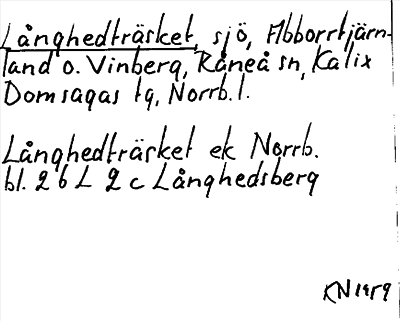 Långhedträsket, sjö, Abborrtjärn-
land o. Vinberg, Råneå sn, Kalix
Domsagas tg, Norrb.l.
Långhedträsket ek Norrb.
bl. 26 L 2 c Långhedsberg
KN 1959